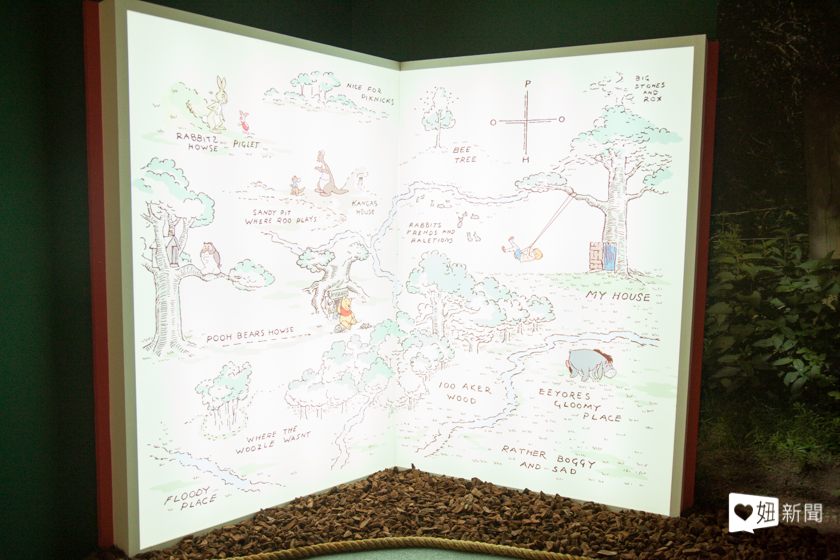 NICE FOR
PIKNICKS
RABBITZ
HOWSE
PIGLET
SANDY PIT
WHERE ROO PLAYS
KANGAS
HOUSE
POOH BEARS HOWSE
WHERE THE
WOOZLE WASNT
FLOODY
PLACE
P
O O
H
BIG
STONES
AND
ROX
BEE
TREE
RABBITS
FRENDS AND
RALETIONS
MY HOUSE
100 AKER
WOOD
EEYORES
GLOOMY
PLACE
RATHER BOGGY
AND SAD
妞新聞